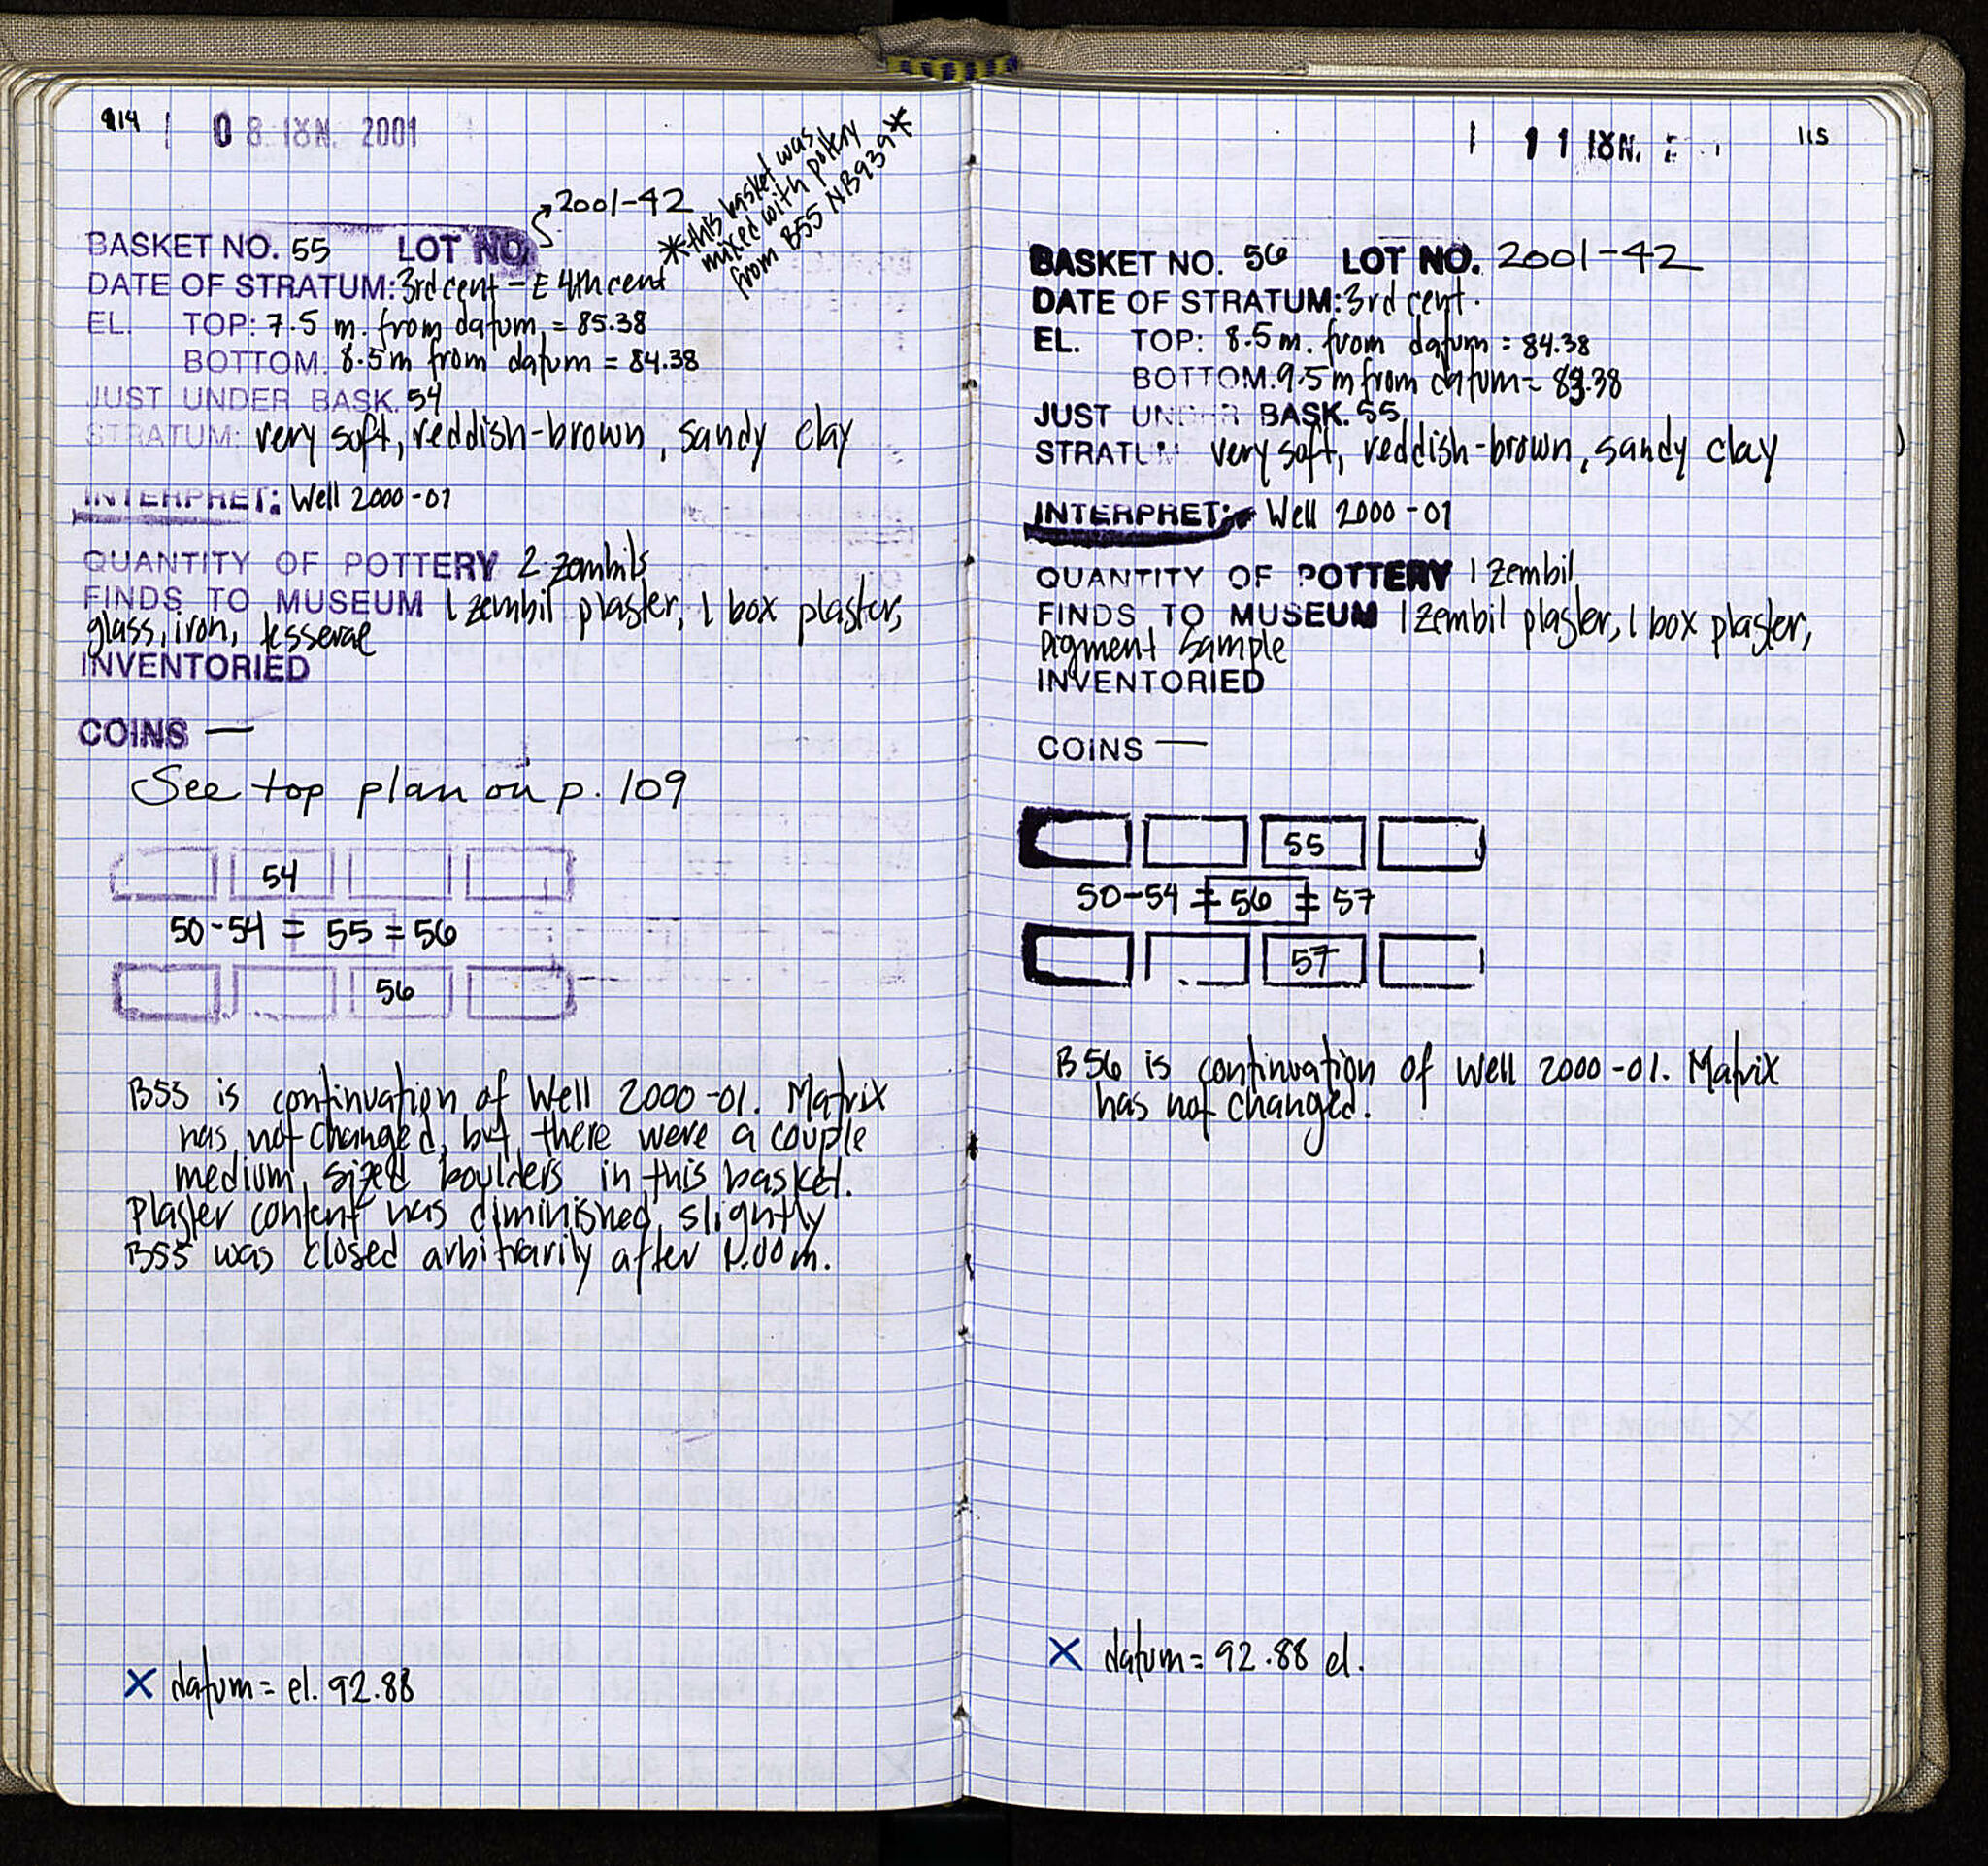 114
08 ΙΟΥΝ. 2001
*this basket was
mixed with pottery
from B55 NB939*
2001-42
BASKET NO. 55 LOT NO.
DATE OF STRATUM: 3rd cent - E 4th cent
EL. TOP: 7.5 m. from datum = 85.38
BOTTOM: 8.5 m from datum = 84.38
JUST UNDER BASK. 54
STRATUM: very soft, reddish-brown, sandy clay
INTERPRET: Well 2000-01
QUANTITY OF POTTERY 2 zembils
FINDS TO MUSEUM 1 zembil plaster, 1 box plaster,
glass, iron, tesserae
INVENTORIED
COINS —
See top plan on p. 109
54
50-54 = 55 = 56
56
B55 is continuation of Well 2000-01. Matrix
has not changed, but there were a couple
medium sized boulders in this basket.
Plaster content has diminished slightly
B55 was closed arbitrarily after 1.00m.
X datum = el. 92.88
11 ΙΟΥΝ.
115
BASKET NO. 56 LOT NO. 2001-42
DATE OF STRATUM: 3rd cent.
EL. TOP: 8.5 m. from datum = 84.38
BOTTOM. 9.5 m from datum = 83.38
JUST UNDER BASK. 55
STRATUM very soft, reddish-brown, sandy clay
INTERPRET: Well 2000-01
QUANTITY OF POTTERY 1 zembil
FINDS TO MUSEUM 1 zembil plaster, 1 box plaster,
pigment sample
INVENTORIED
COINS —
55
50-54 = 56 = 57
57
B56 is continuation of Well 2000-01. Matrix
has not changed.
X datum = 92.88 el.